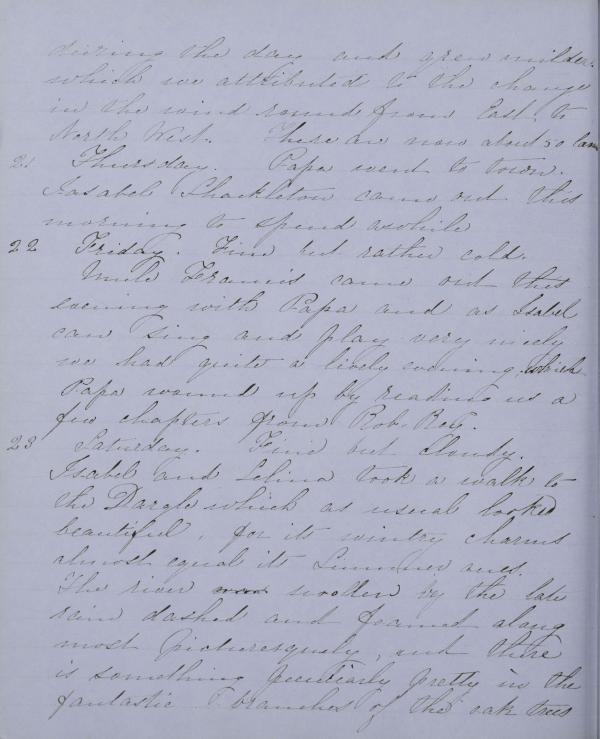 during the day and grew milder.
which we attributed to the change
in the wind round from East to
North West. There are now about 50 lam
21 Thursday. Papa went to town.
Isabel Shackleton came out this
morning to spend awhile
22 Friday. Fine but rather cold.
Uncle Francis came out this
evening with Papa and as Isabel
can sing and play very nicely
we had quite a lively evening, which
Papa wound up by reading us a
few chapters from Rob Roy.
23 Saturday. Fine but cloudy.
Isabel and Selina took a walk to
the Dargle which as usual looked
beautiful, for its wintry charms
almost equal its Summer ones.
The river swollen by the late
rain dashed and foamed along
most picturesquely, and there
is something peculiarly pretty in the
fantastic branches of the oak trees